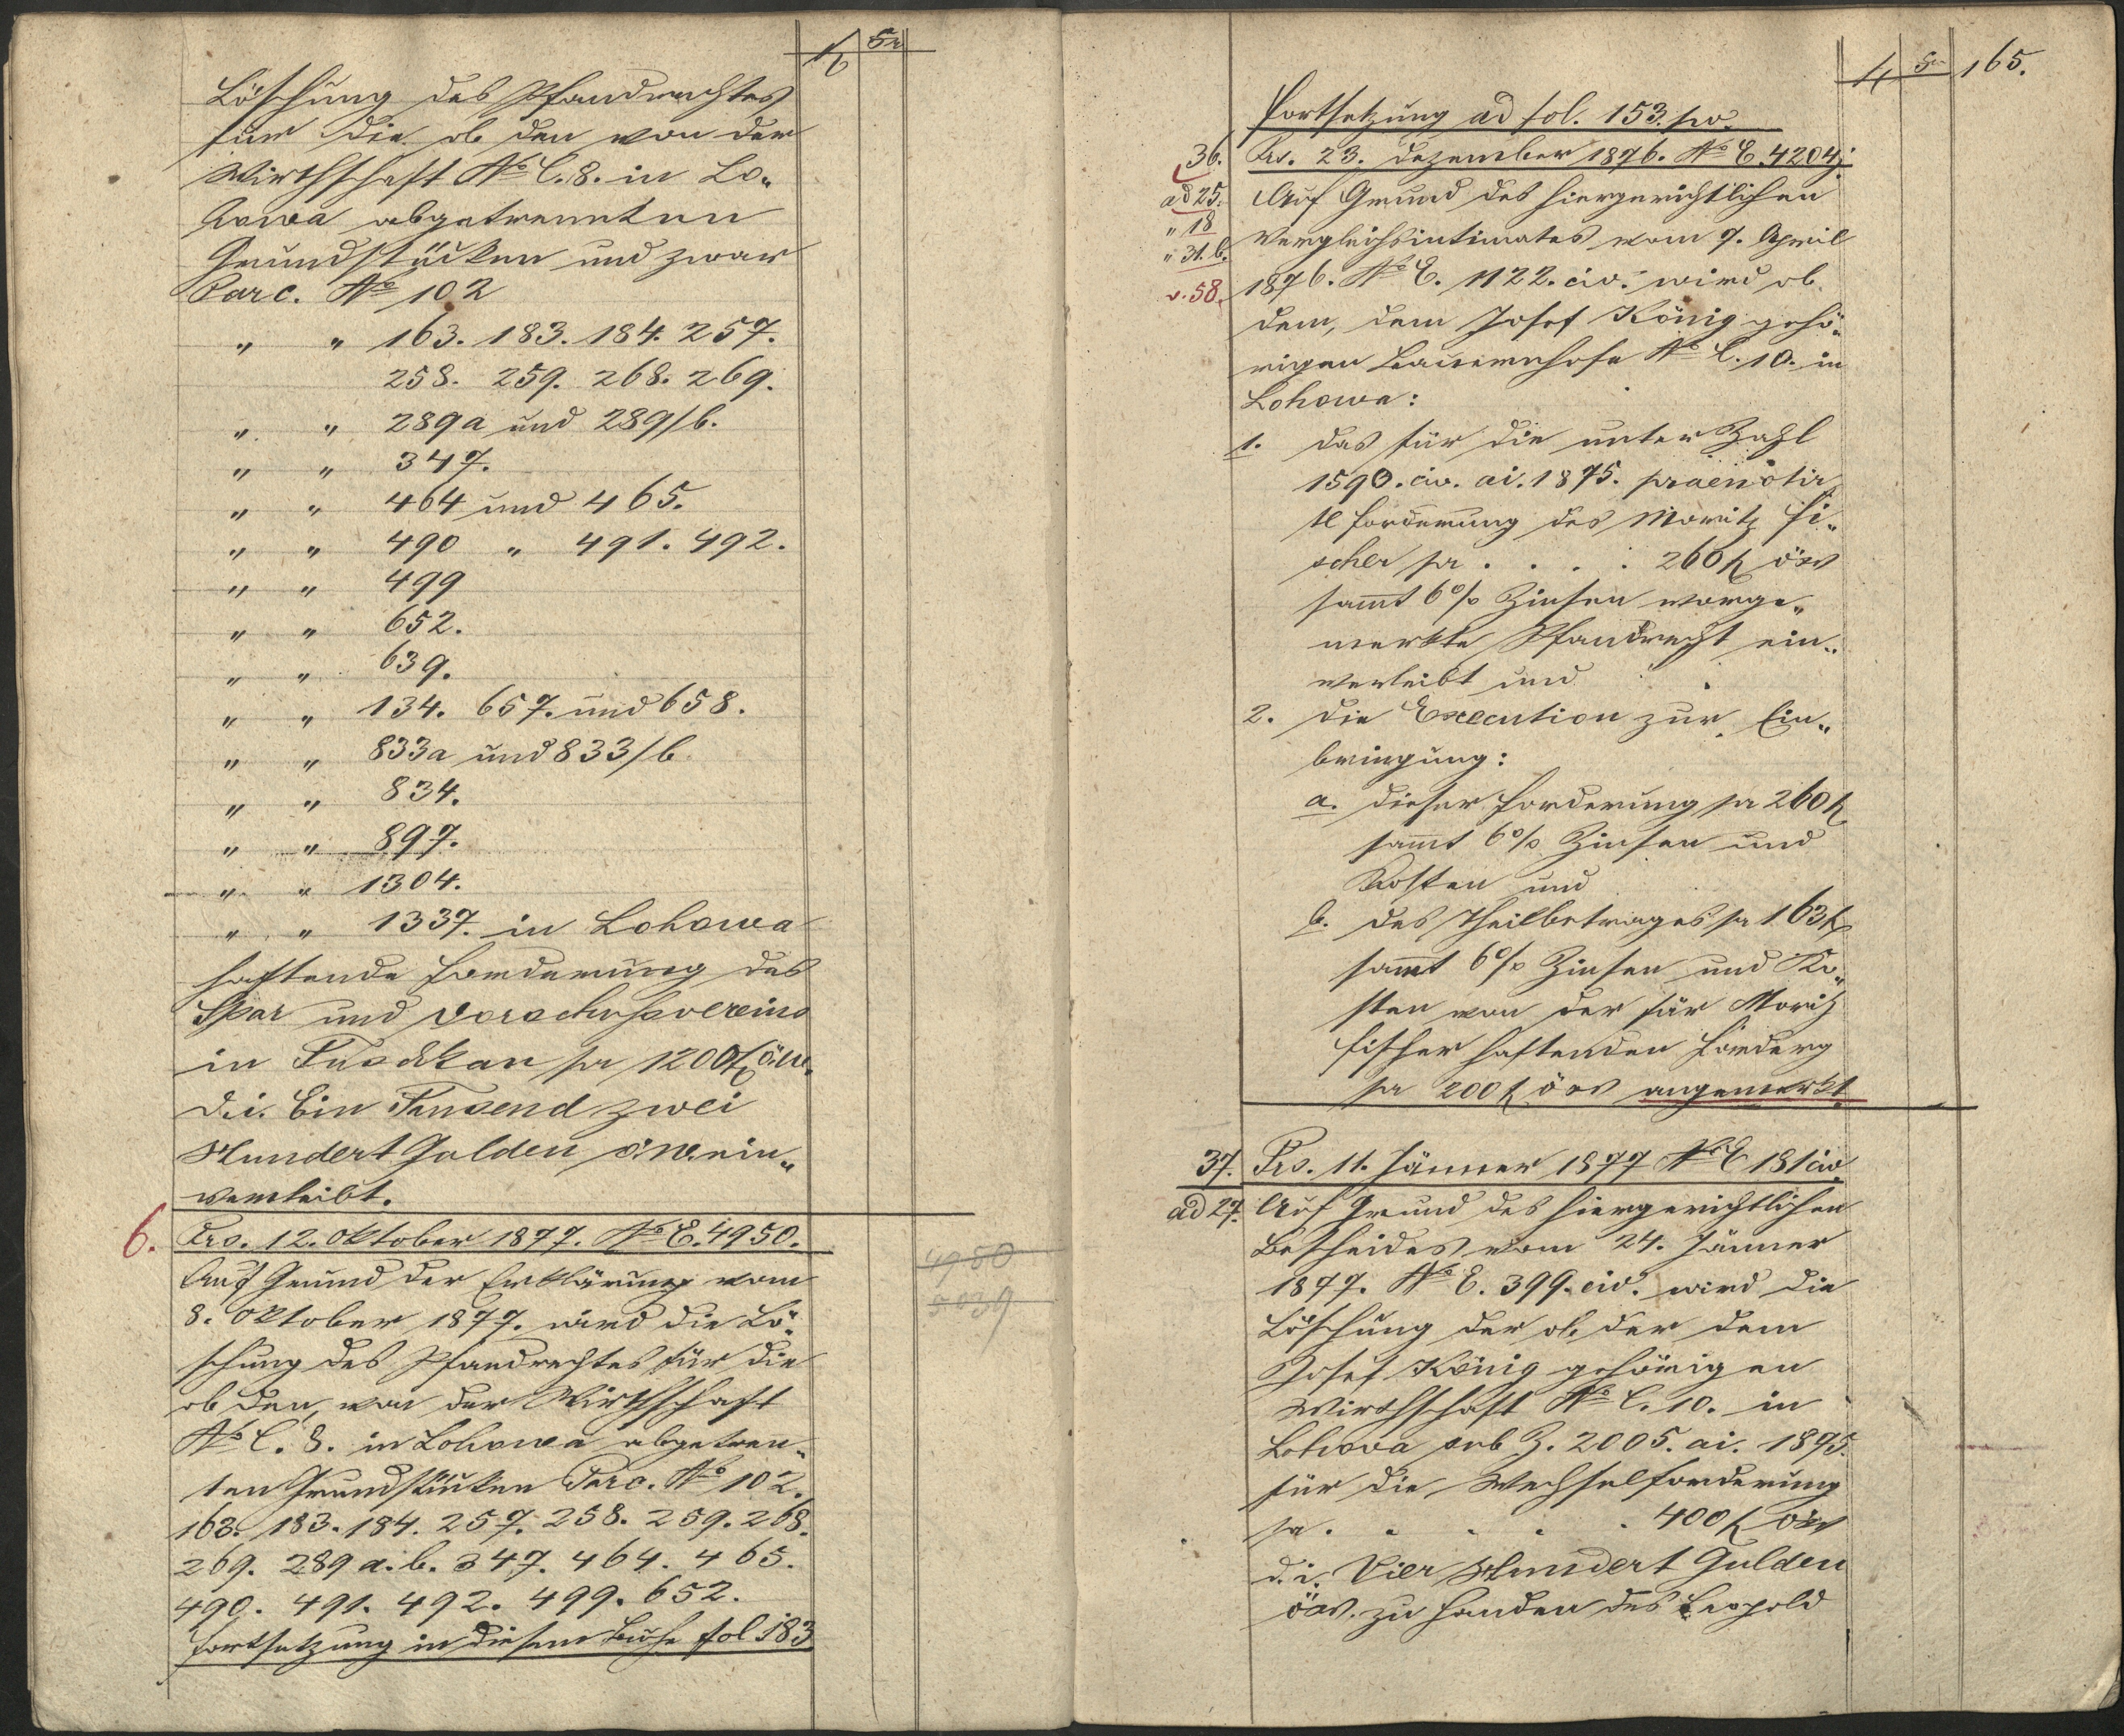 f kr
Löschung des Pfandrechtes
für die ob den von der
Wirthschaft No C. 8. in Lo„
howa abgetrennten
Grundstücken und zwar
Parc. No 102
„ „ 163. 183. 184. 257.
258. 259. 268. 269.
„ „ 289a und 289/b.
„ „ 347.
„ „ 464 und 465.
„ „ 490 „ 491. 492.
„ „ 499
„ „ 652.
„ „ 639.
„ „ 134. 657. und 658.
„ „ 833a und 833/b.
„ „ 834.
„ „ 897.
„ „ 1304.
„ „ 1337. in Lohowa
haftende Forderung des
Spar und Vorschußvereins
in Tuschkau pr 1200 f öw.
d. i. Ein Tausend zwei
Hundert Golden ö. W. ein„
verleibt.
6. Prs. 12. Oktober 1877. No E. 4950.
Auf Grund der Erklärung vom
8. Oktober 1877. wird die Lö„
schung des Pfandrechtes für die
ob den, von der Wirthschaft
No C. 8. in Lohowa abgetren„
ten Grundstücken Parc. No 102.
163. 183. 184. 257. 258. 259. 268.
269. 289 a. b. 347. 464. 465.
490. 491. 492. 499. 652.
Fortsetzung in diesem Buche fol 183
4950
5039
f kr 165.
Fortsetzung ad fol. 153. pv.
36. Prs. 23. Dezember 1876. No E. 4204j
ad 25. Auf Grund des hiergerichtlichen
„ 18 Vergleichsintimates vom 7. April
„ 31. b.
v. 58. 1876. No E. 1122. civ. wird ob
dem, dem Josef König gehö„
rigen Bauernhofe No C. 10. in
Lohowa:
1. das für die unter Zahl
1590. civ. ai. 1875. praenotir„
te Forderung des Moritz Fi„
scher pr . . . . 260 f öw
sammt 6% Zinsen vorge„
merkte Pfandrecht ein„
verleibt und
2. die Execution zur Ein„
bringung:
a. dieser Forderung pr 260 f
sammt 6% Zinsen und
Kosten und
b. des Theilbetrages pr 163 f
sammt 6% Zinsen und Ko„
sten von der für Moritz
Fischer haftenden Forderg
pr 200 f öw angemerkt.
37. Prs. 11. Jänner 1877 No E 181 civ
ad 27. Auf Grund des hiergerichtlichen
Bescheides vom 24. Jänner
1877. No E. 399. civ. wird die
Löschung der ob der dem
Josef König gehörigen
Wirthschaft No C. 10. in
Lohowa sub Z. 2005. ai. 1875.
für die Wechselforderung
pr . . . . . 400 f öw
d. i. Vier Hundert Gulden
öw. zu Handen des Leopold